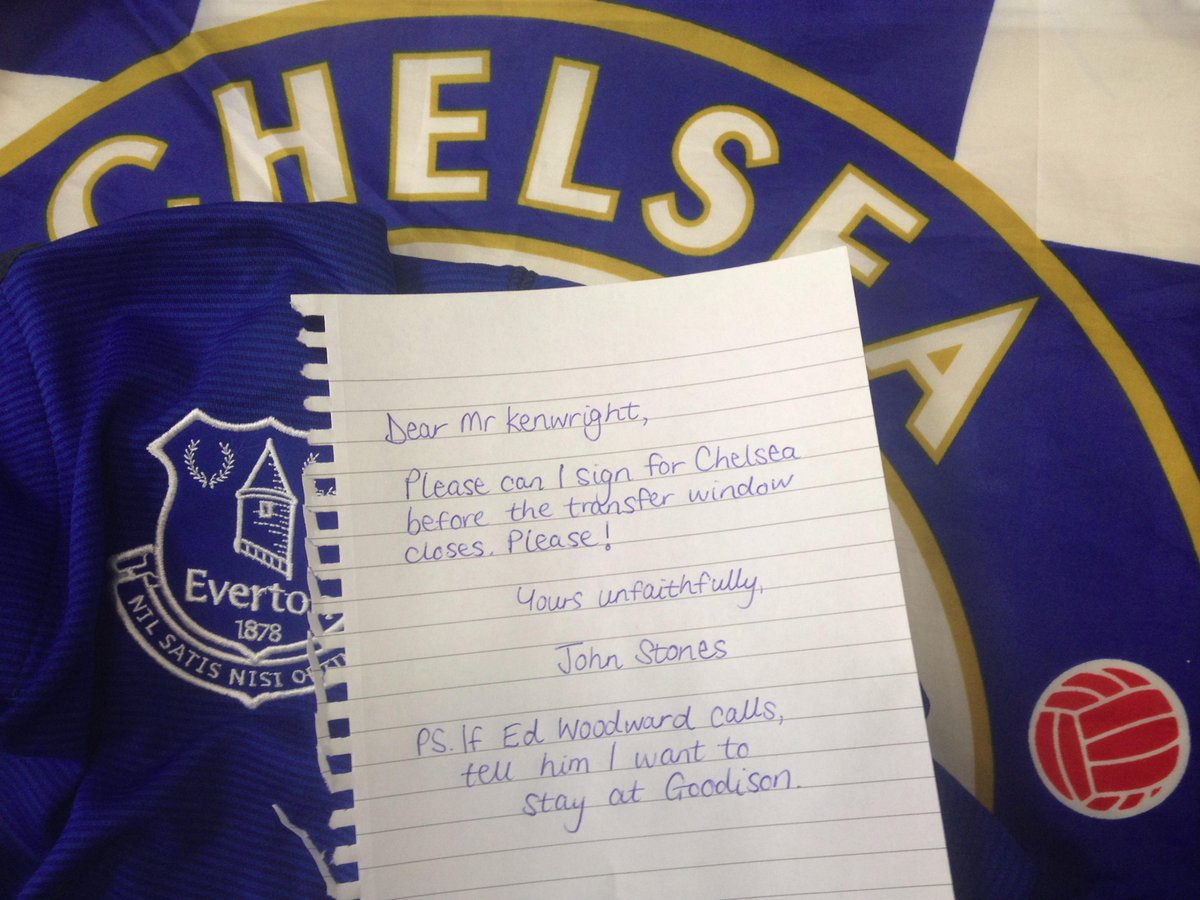 CHELSEA
Dear Mr Kenwright,
Please can I sign for Chelsea
before the transfer window
closes. Please!
Yours unfaithfully,
John Stones
PS. If Ed Woodward calls,
tell him I want to
stay at Goodison.
Everto
1878
NIL SATIS NISI